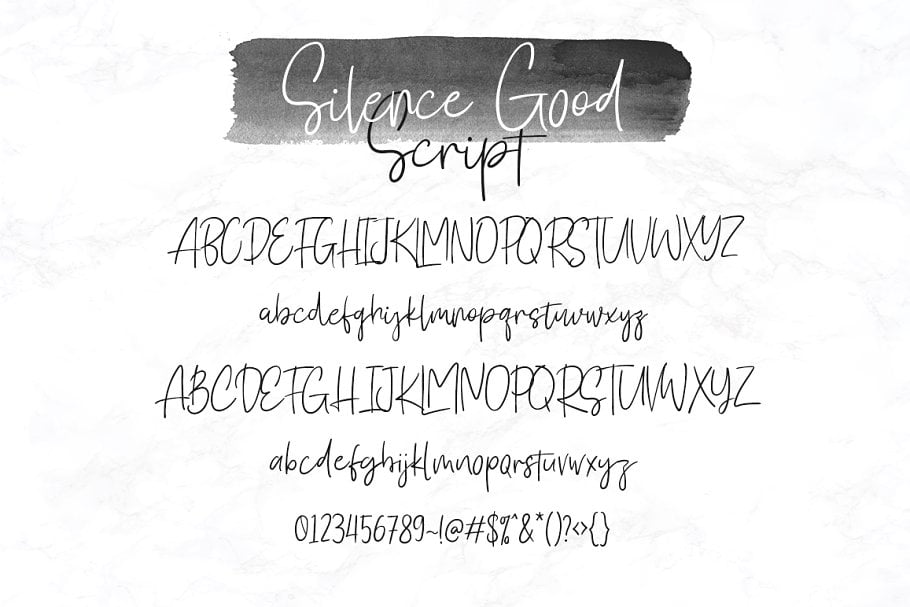 Silence Good
Script
ABCDEFGHIJKLMNOPQRSTUVWXYZ
abcdefghijklmnopqrstuvwxyz
ABCDEFGHIJKLMNOPQRSTUVWXYZ
abcdefghijklmnopqrstuvwxyz
0123456789~!@#$%^&*()?<>{}